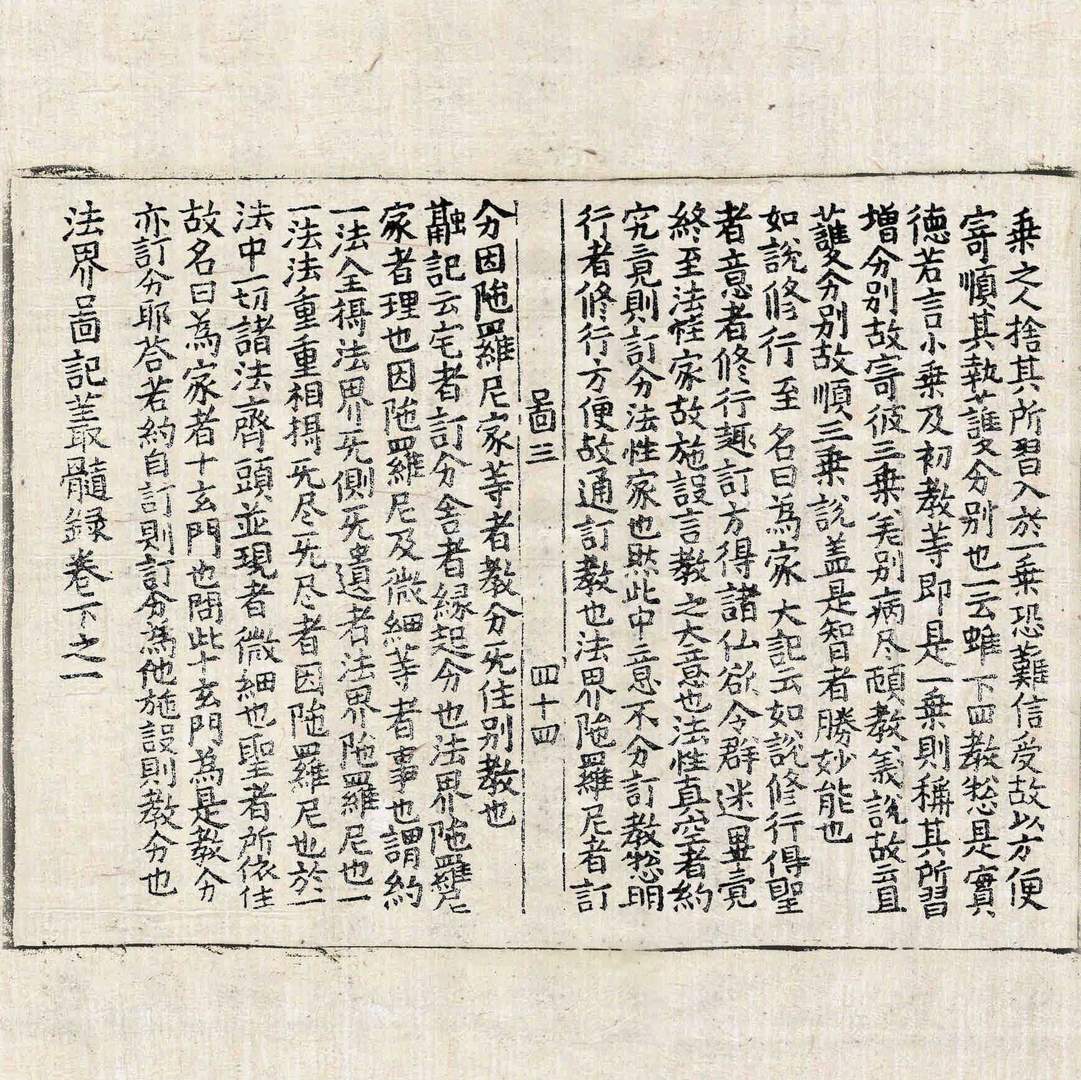 乗之人捨其所習入於一乗恐難信受故以方便
寄順其執護分别也一云雖下四教惣是實
德若言小乗及初教等即是一乗則稱其所習
增分别故寄彼三乗差别病尽頋教義說故云且
護分别故順三乗說盖是智者勝妙能也
如說修行至名曰為家大記云如說修行得聖
者意者修行趣訂方得諸仏欲令群迷畢竟
終至法性家故施設言教之大意也法性真空者約
究竟則訂分法性家也然此中意不分訂教惣明
行者修行方便故通訂教也法界陁羅尼者訂
啚三
四十四
分因陁羅尼家等者教分旡住别教也
融記云宅者訂分舍者縁起分也法界陁羅尼
家者理也因陁羅尼及微細等者事也謂約
一法全攝法界旡側旡遺者法界陁羅尼也一
一法法重重相攝旡尽旡尽者因陁羅尼也於一
法中一切諸法齊頭並現者微細也聖者所依住
故名曰為家者十玄門也問此十玄門為是教分
亦訂分耶荅若約自訂則訂分為他施設則教分也
法界啚記䕺髓錄卷下之一